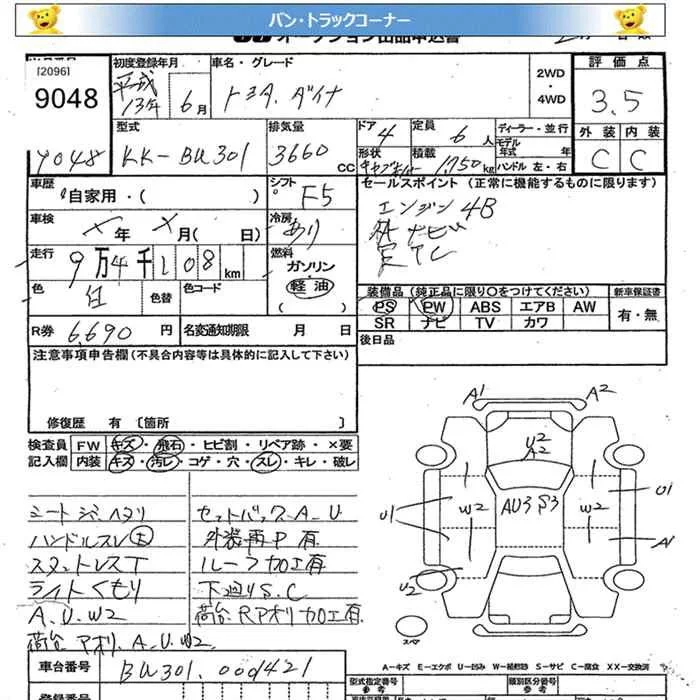 バン・トラックコーナー
オークション出品申込書
[2096]
9048
9048
初度登録年月
平成
13年 6月
車名・グレード
トヨタ. ダイナ
2WD
・
4WD
評価点
3.5
外装 内装
C C
型式
KK-BU301
排気量
3660 CC
ドア 4
定員 6人
ディーラー・並行
モデル
年式 年
形状
積載 1,750 kg
ハンドル 左・右
車歴
自家用・( )
シフト F5
セールスポイント (正常に機能するものに限ります)
エンジン 4B
外 ナビ
定 TC
車検
年 月( 日)
冷房
あり
走行
9万4千108km
燃料
ガソリン
軽油
色
白
色替
色コード
装備品(純正品に限り○をつけてください)
新車保証書
PS PW ABS エアB AW
SR ナビ TV カワ
有・無
R券 6,690 円
名変通知期限 月 日
後日品
注意事項申告欄(不具合内容等は具体的に記入して下さい)
修復歴 有 〔箇所 〕
検査員
記入欄
FW キズ・飛石・ヒビ割・リペア跡・×要
内装 キズ・汚レ・コゲ・穴・スレ・キレ・破レ
シートジミヘタリ
ハンドルスレ大
スタットレスT
ライトくもり
A.U.W2
荷台 アオリ.A.U.W2
セットバック A.U
外装再P有
ルーフ加工有
下廻りS.C
荷台Rアオリ加工有
A1 A2
U2
A2
W2 AU3 S3 W2
U1 U1
A1
U2
スペア
A-キズ E-エクボ U-凹み W-補修跡 S-サビ C-腐食 XX-交換済
車台番号
BU301.0001421
登録番号
型式指定番号
参考
類別区分番号
参考